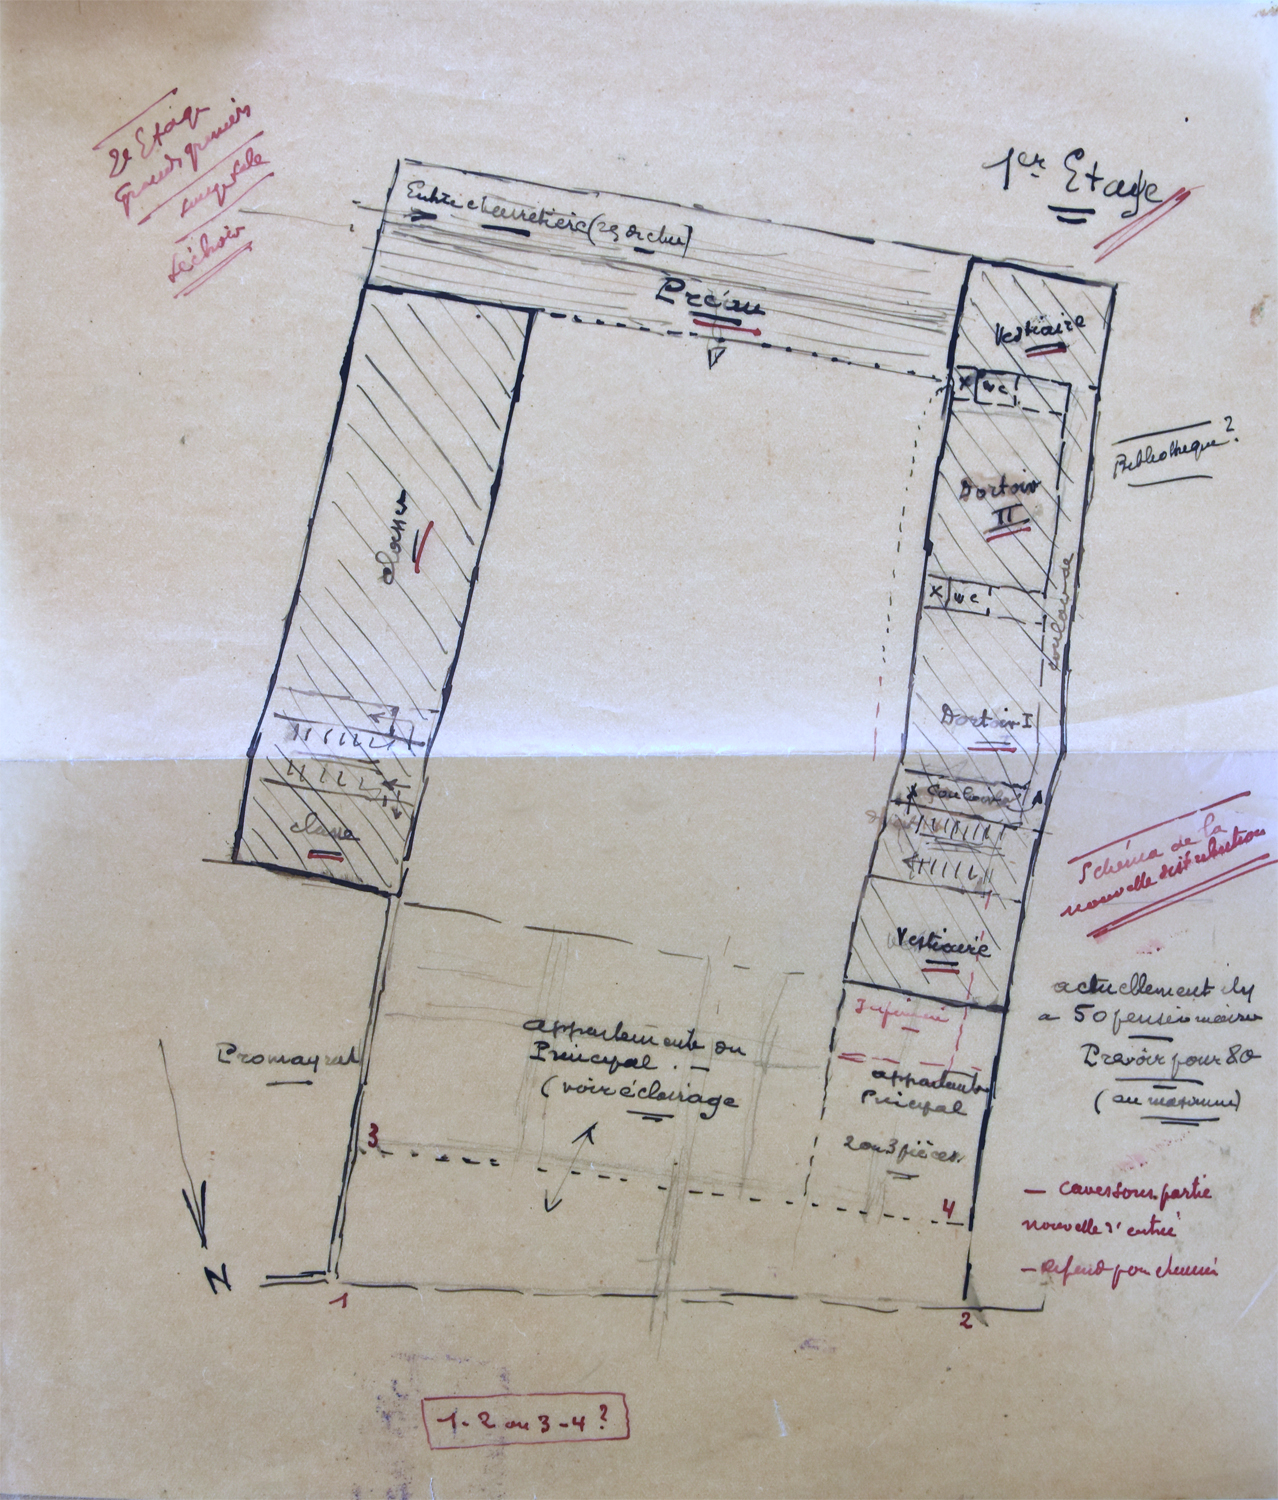 2e Etage
Grands greniers
Séchoir
1er Etage
Entrée charretière (rez de ch.)
Préau
Vestiaire
X WC
Bibliothèque?
Dortoir
II
classes
X WC
couloir de
Dortoir I
Couloir
classe
Schéma de la
nouvelle distribution
Vestiaire
actuellement il y
a 50 pensionnaires
Prévoir pour 80
(au maximum)
appartements du
Principal. -
(voir éclairage
Promayrat
appartents
Principal
2 ou 3 pièces.
3
4
- caves sous partie
nouvelle d'entrée
- refend pour cheminé
N
1
2
1-2 ou 3-4?